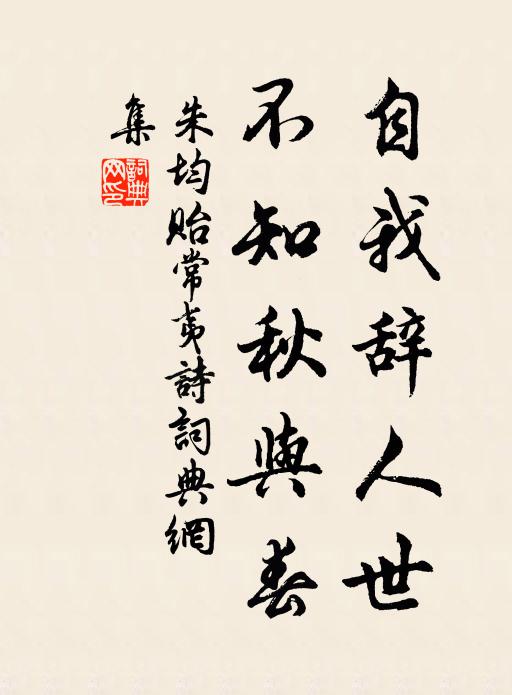 自我辞人世
不知秋與春
朱均贻常夷詩詞典網
集
詞典網印